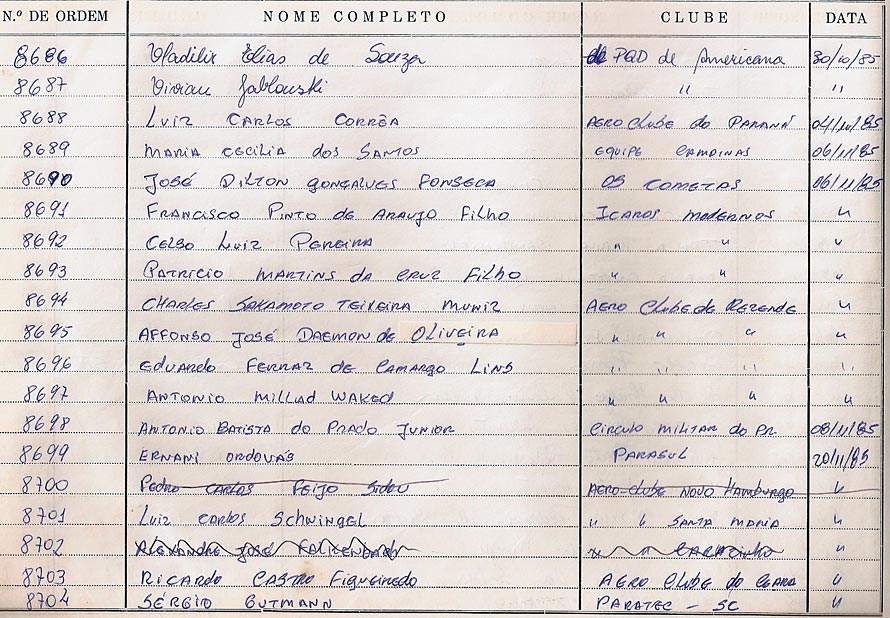 N.º DE ORDEM NOME COMPLETO CLUBE DATA
8686 Vladilix Elias de Souza PQD de Americana 30/10/85
8687 Vivian Jablonski " "
8688 Luiz CARLOS CORRÊA AERO Clube do PARANÁ 04/11/85
8689 MARIA CECILIA dos SANTOS EQUIPE CAMPINAS 06/11/85
8690 JOSÉ DILTON GONÇALVES FONSECA OS COMETAS 06/11/85
8691 FRANCISCO PINTO de ARAUJO Filho ICAROS modernos "
8692 CELSO Luiz PEREIRA " " "
8693 PATRICIO MARTINS DA CRUZ Filho " " "
8694 CHARLES SAKAMOTO TEIXEIRA MUNIZ AERO Clube de REZENDE "
8695 AFFONSO JOSÉ DAEMON de OLIVEIRA " " " "
8696 Eduardo FERRAZ de CAMARGO LINS " " " "
8697 ANTONIO Millad WAKED " " " "
8698 ANTONIO BATISTA do PRADO JUNIOR CIRCULO MILITAR do PR 08/11/85
8699 ERNANI ORDOVÁS PARASUL 20/11/85
8700 Pedro CARLOS FEIJO AERO-Clube NOVO HAMBURGO "
8701 Luiz CARLOS SCHWINGEL " " SANTA MARIA "
8702 ALEXANDRE JOSÉ " " "
8703 RICARDO CASTRO Figueiredo AERO Clube do CEARA "
8704 SÉRGIO GUTMANN PARATEC - SC "